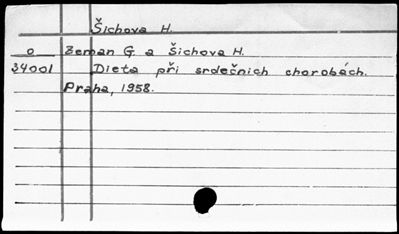 Šichova H.
0 Zeman G. a Šichova H.
34001 Dieta při srdečnich chorobách.
Praha, 1958.